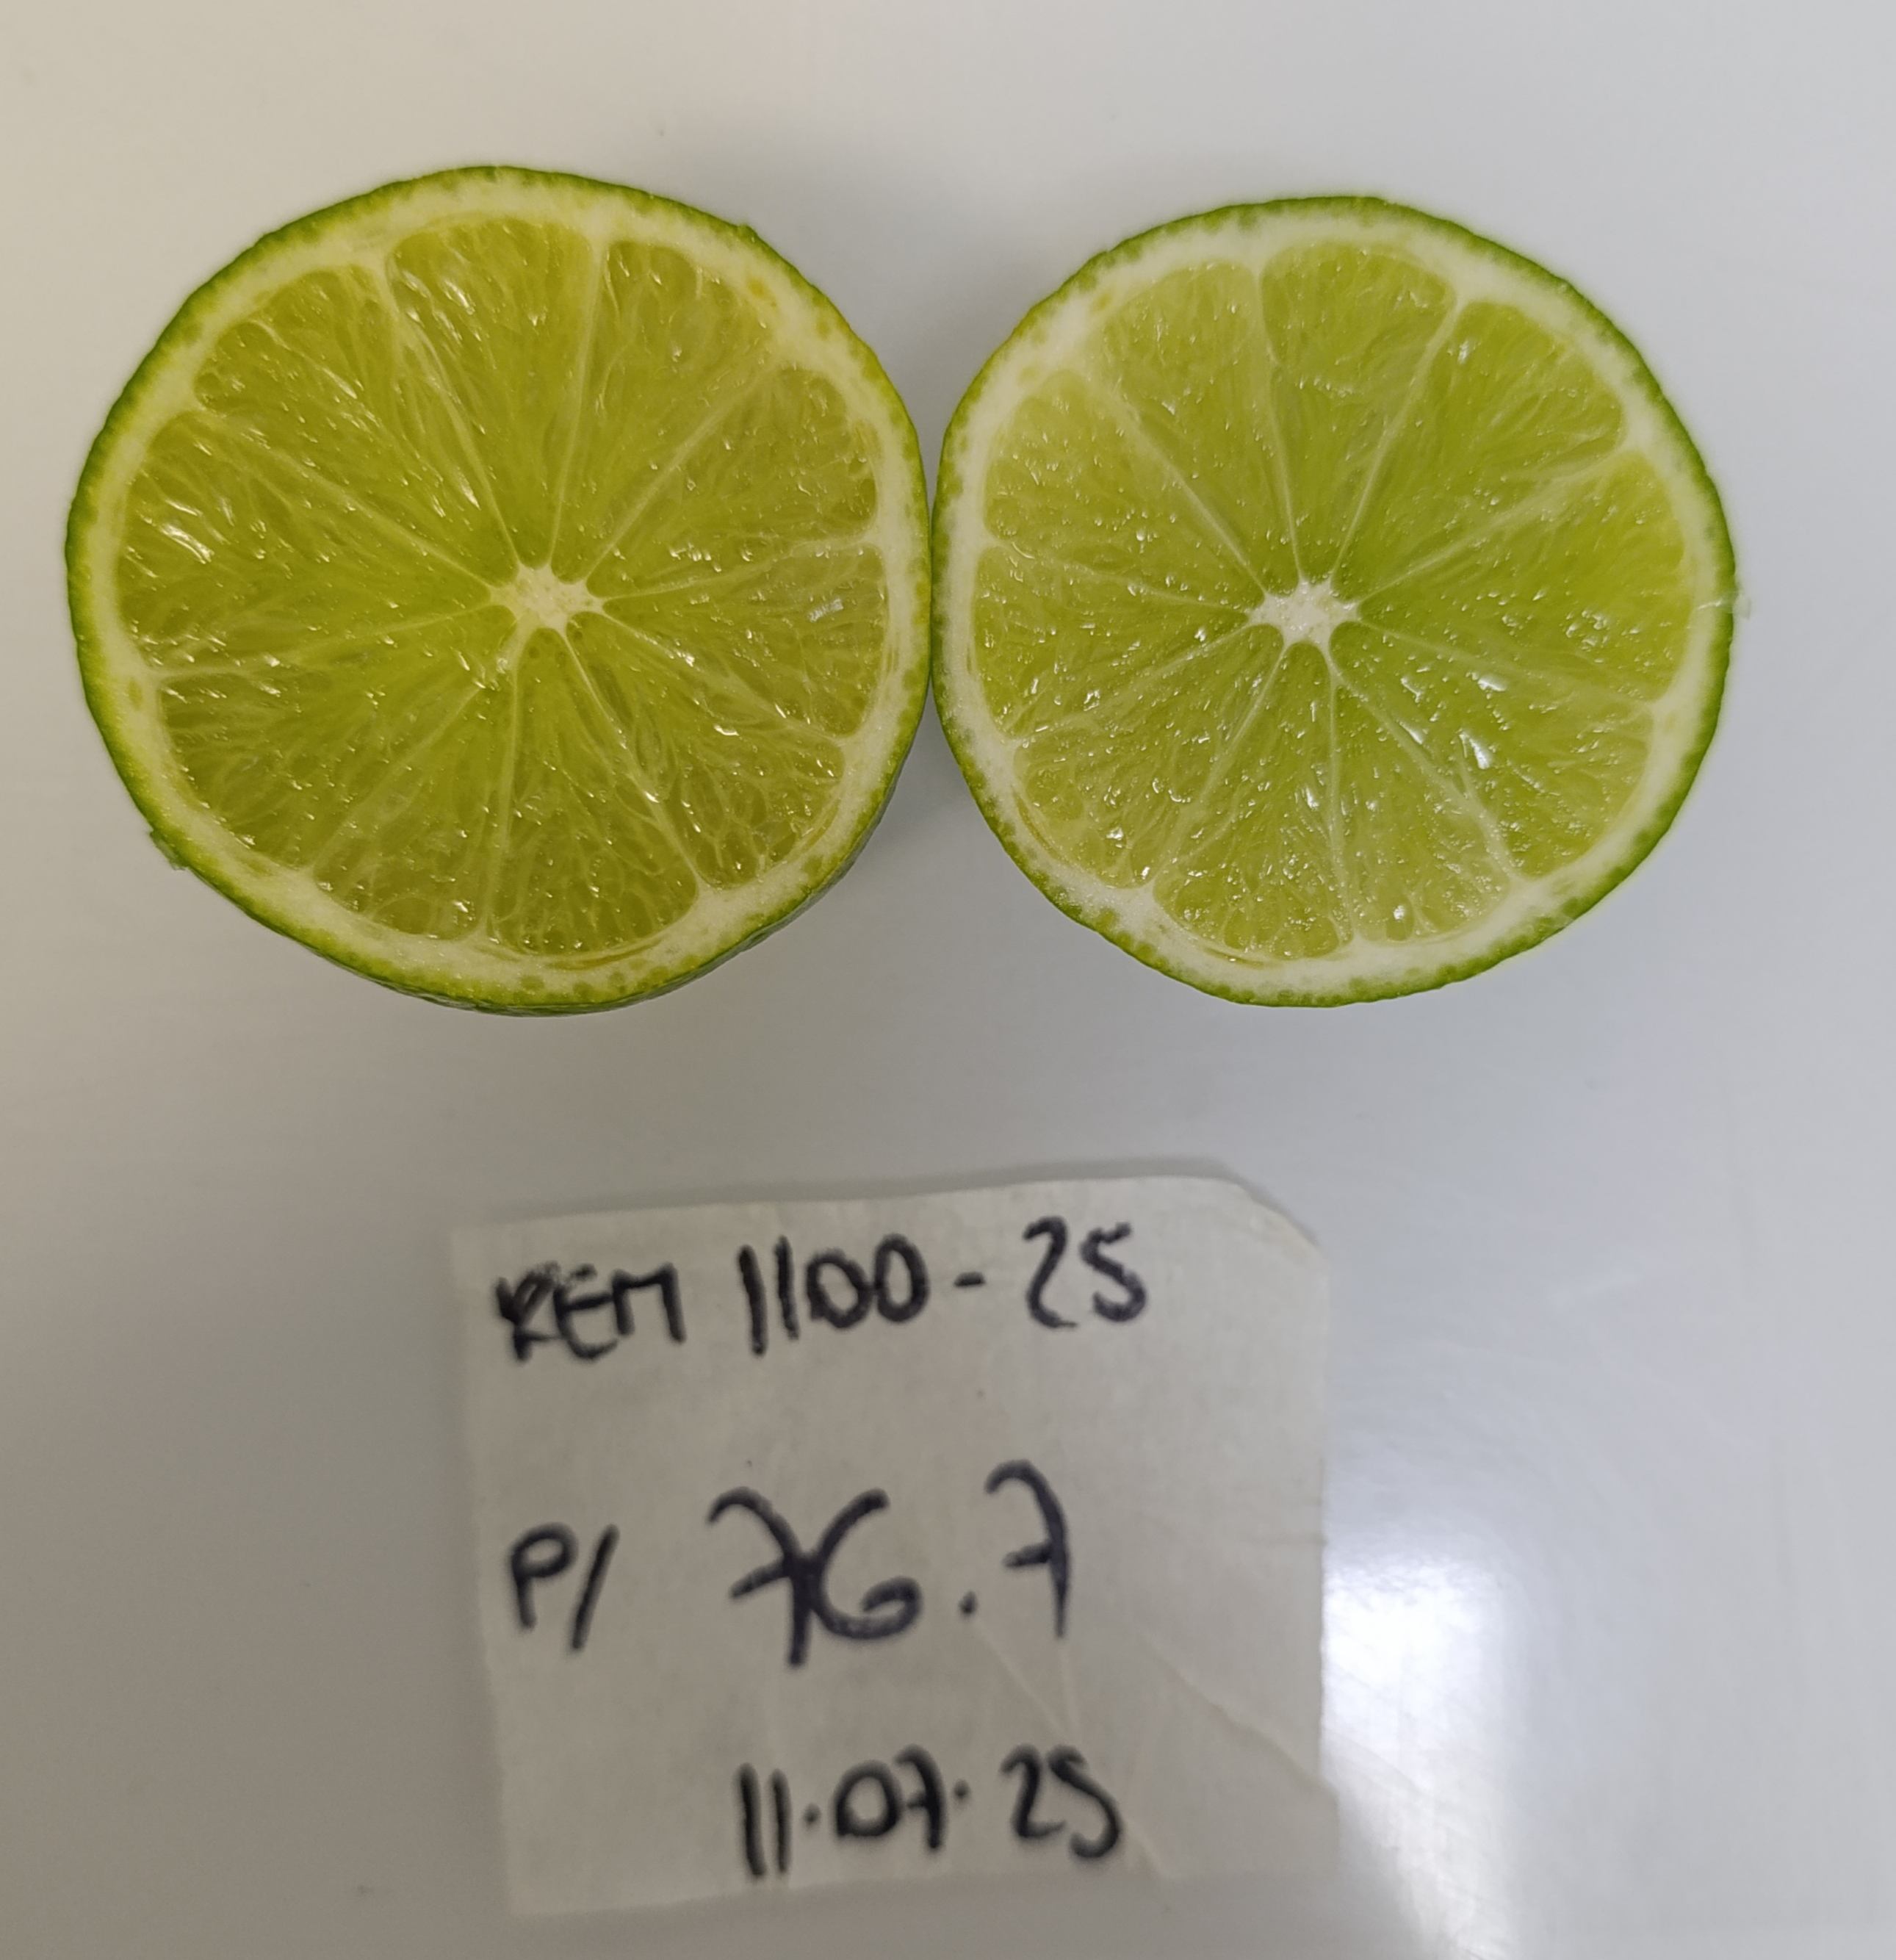 REM 1100-25
P/ 76.7
11.07.25